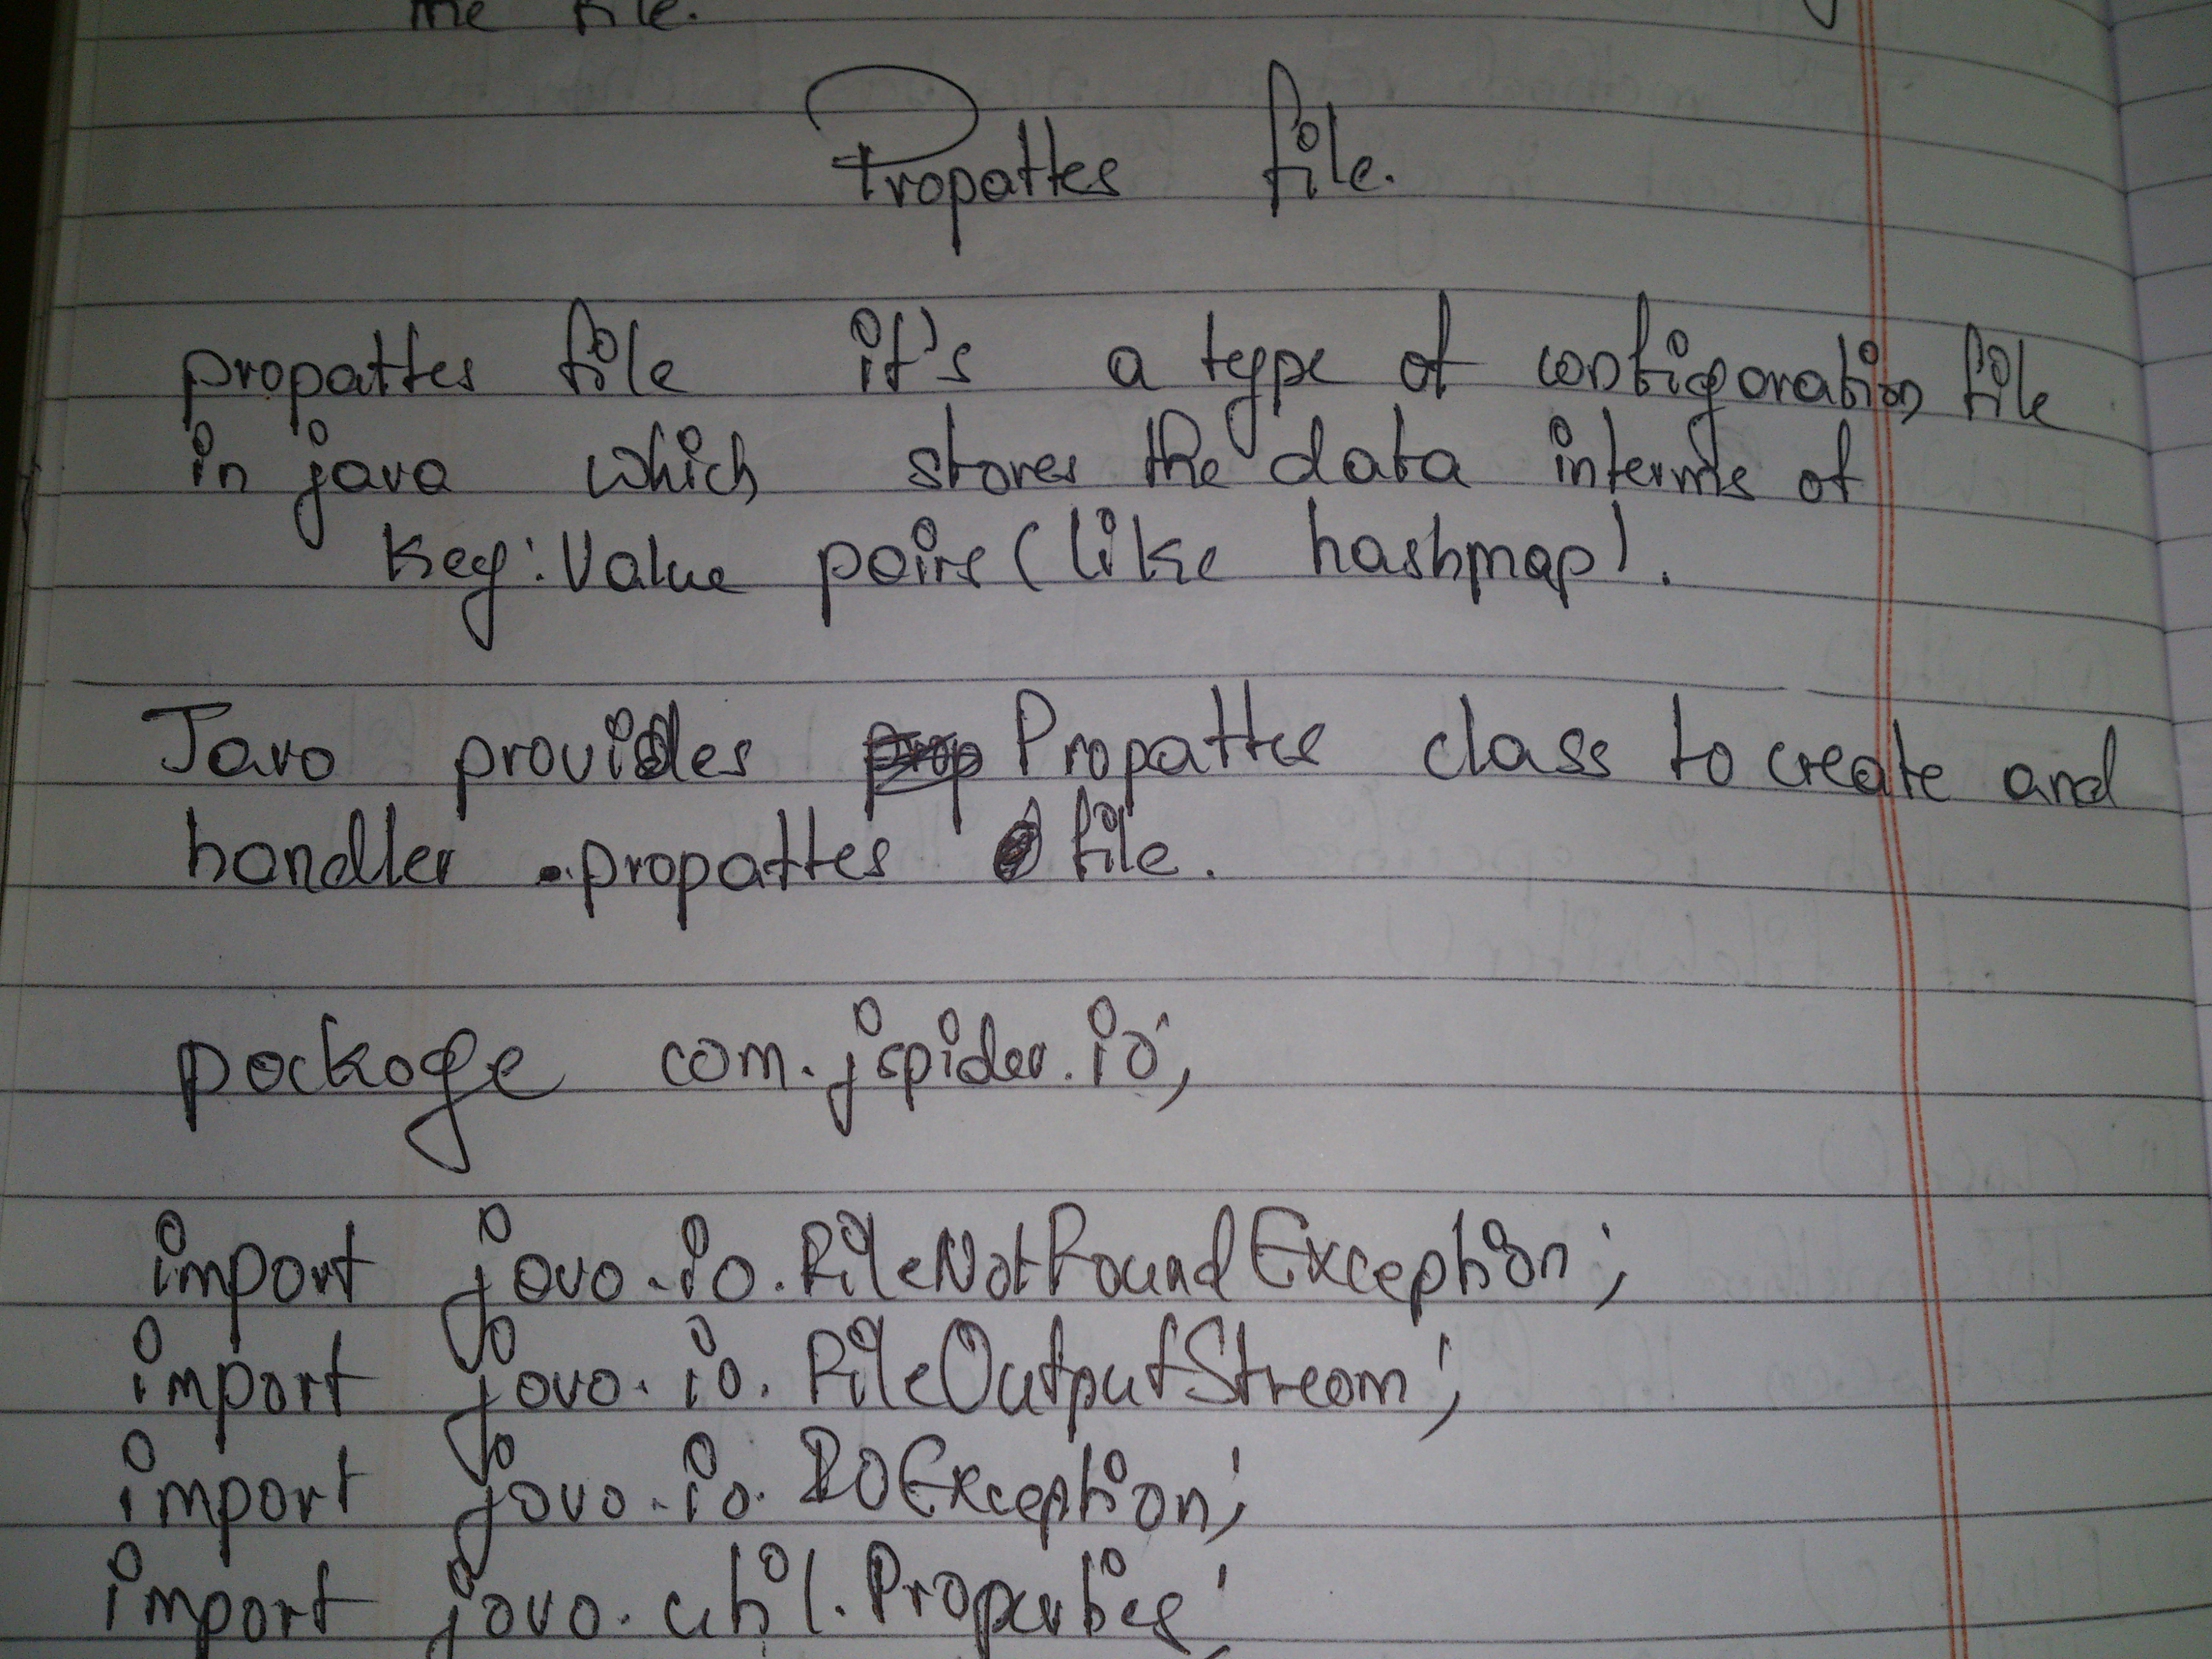 the file.
Propattes file.
propattes file it's a type of configoration file
in java which stores the data interms of
Key:Value pairs (like hashmap).
Java provides Propattes class to create and
handler .propattes file.
package com.jspider.io;
import java.io.FileNotFoundException;
import java.io.FileOutputStream;
import java.io.IOException;
import java.util.Properties;